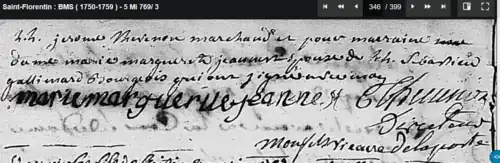 Saint-Florentin : BMS ( 1750-1759 ) - 5 Mi 769/ 3
346 / 399
h. jerome Thevenon marchand et pour marraine
dame marie marguerite jeannet Epouse de h. Sebastien
gallimard Bourgeois qui ont signé avec moy
marie marguerite jeannet
Delaporte